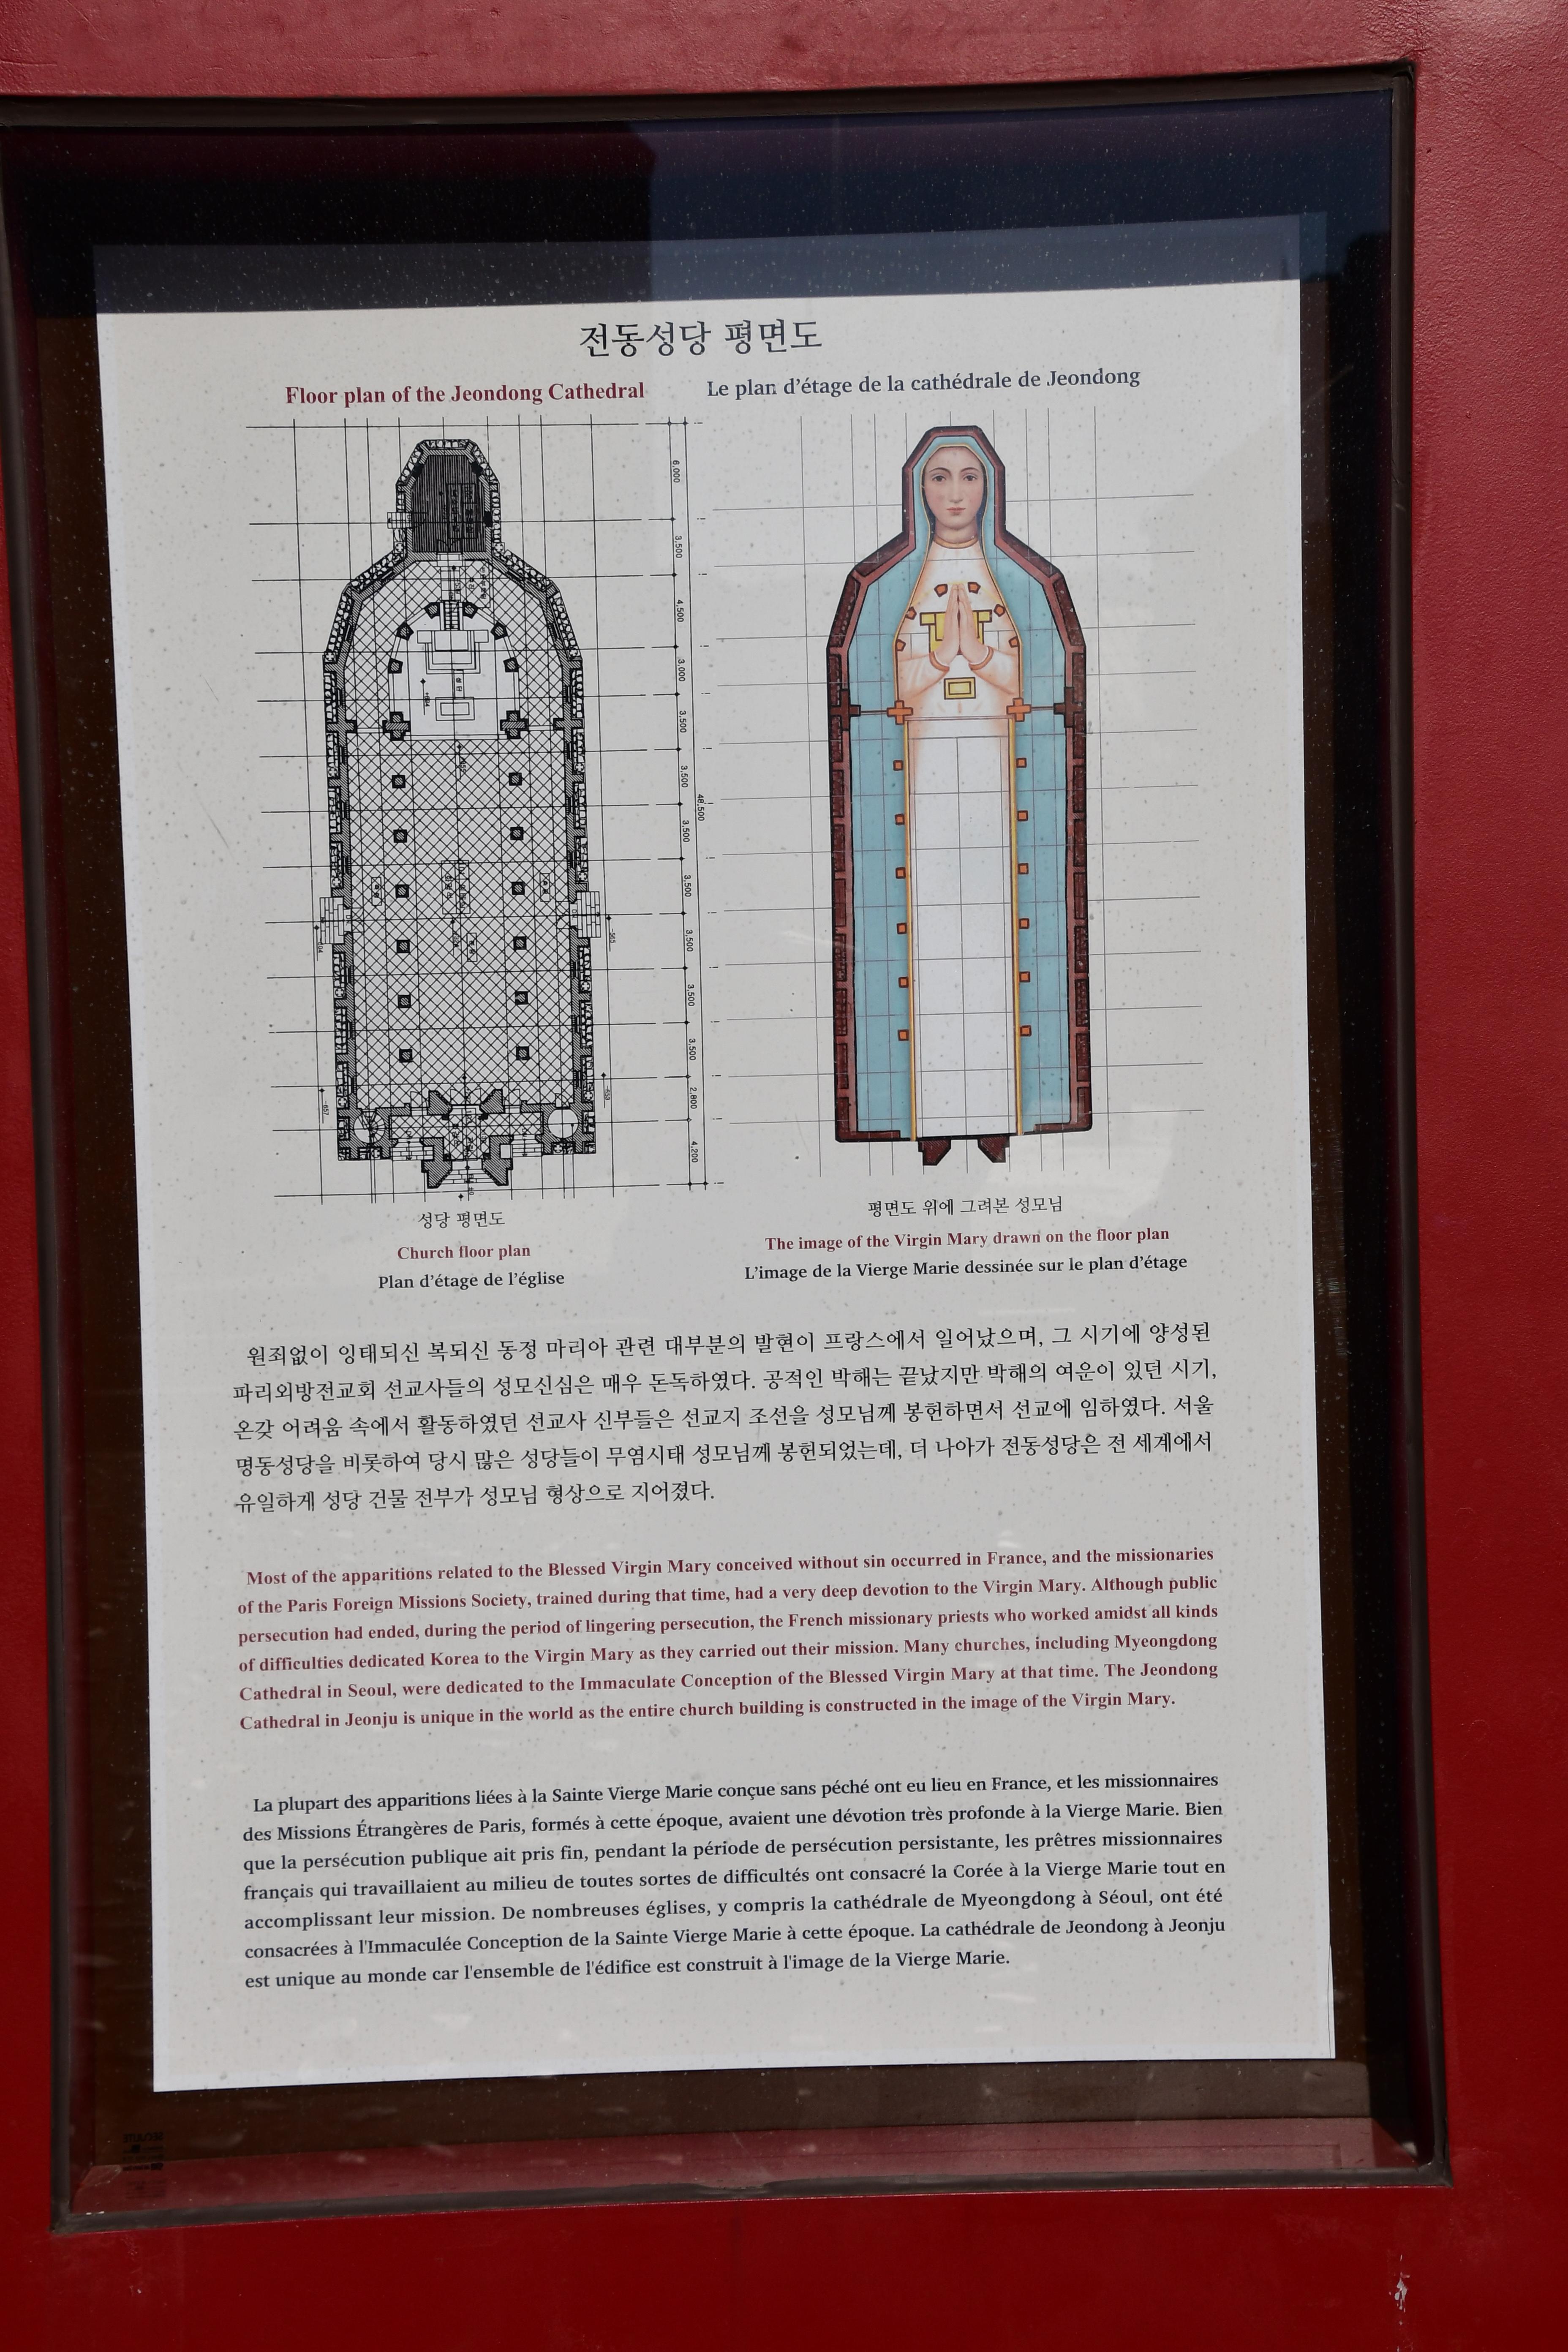 전동성당 평면도
Floor plan of the Jeondong Cathedral
Le plan d'étage de la cathédrale de Jeondong
6,000
3,500
4,500
3,000
3,500
3,500
3,500
3,500
3,500
3,500
3,500
2,800
4,200
48,500
성당 평면도
Church floor plan
Plan d'étage de l'église
평면도 위에 그려본 성모님
The image of the Virgin Mary drawn on the floor plan
L'image de la Vierge Marie dessinée sur le plan d'étage
원죄없이 잉태되신 복되신 동정 마리아 관련 대부분의 발현이 프랑스에서 일어났으며, 그 시기에 양성된
파리외방전교회 선교사들의 성모신심은 매우 돈독하였다. 공적인 박해는 끝났지만 박해의 여운이 있던 시기,
온갖 어려움 속에서 활동하였던 선교사 신부들은 선교지 조선을 성모님께 봉헌하면서 선교에 임하였다. 서울
명동성당을 비롯하여 당시 많은 성당들이 무염시태 성모님께 봉헌되었는데, 더 나아가 전동성당은 전 세계에서
유일하게 성당 건물 전부가 성모님 형상으로 지어졌다.
Most of the apparitions related to the Blessed Virgin Mary conceived without sin occurred in France, and the missionaries
of the Paris Foreign Missions Society, trained during that time, had a very deep devotion to the Virgin Mary. Although public
persecution had ended, during the period of lingering persecution, the French missionary priests who worked amidst all kinds
of difficulties dedicated Korea to the Virgin Mary as they carried out their mission. Many churches, including Myeongdong
Cathedral in Seoul, were dedicated to the Immaculate Conception of the Blessed Virgin Mary at that time. The Jeondong
Cathedral in Jeonju is unique in the world as the entire church building is constructed in the image of the Virgin Mary.
La plupart des apparitions liées à la Sainte Vierge Marie conçue sans péché ont eu lieu en France, et les missionnaires
des Missions Étrangères de Paris, formés à cette époque, avaient une dévotion très profonde à la Vierge Marie. Bien
que la persécution publique ait pris fin, pendant la période de persécution persistante, les prêtres missionnaires
français qui travaillaient au milieu de toutes sortes de difficultés ont consacré la Corée à la Vierge Marie tout en
accomplissant leur mission. De nombreuses églises, y compris la cathédrale de Myeongdong à Séoul, ont été
consacrées à l'Immaculée Conception de la Sainte Vierge Marie à cette époque. La cathédrale de Jeondong à Jeonju
est unique au monde car l'ensemble de l'édifice est construit à l'image de la Vierge Marie.